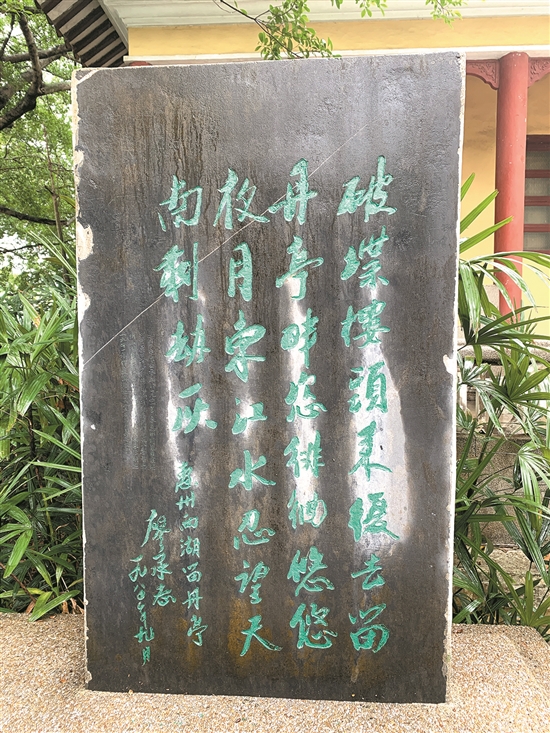 破堞樓頭来復去留
丹亭畔总徘徊悠悠
夜月東江水忍望天
南剩劫灰
惠州西湖留丹亭
廖承志
一九八〇年九月